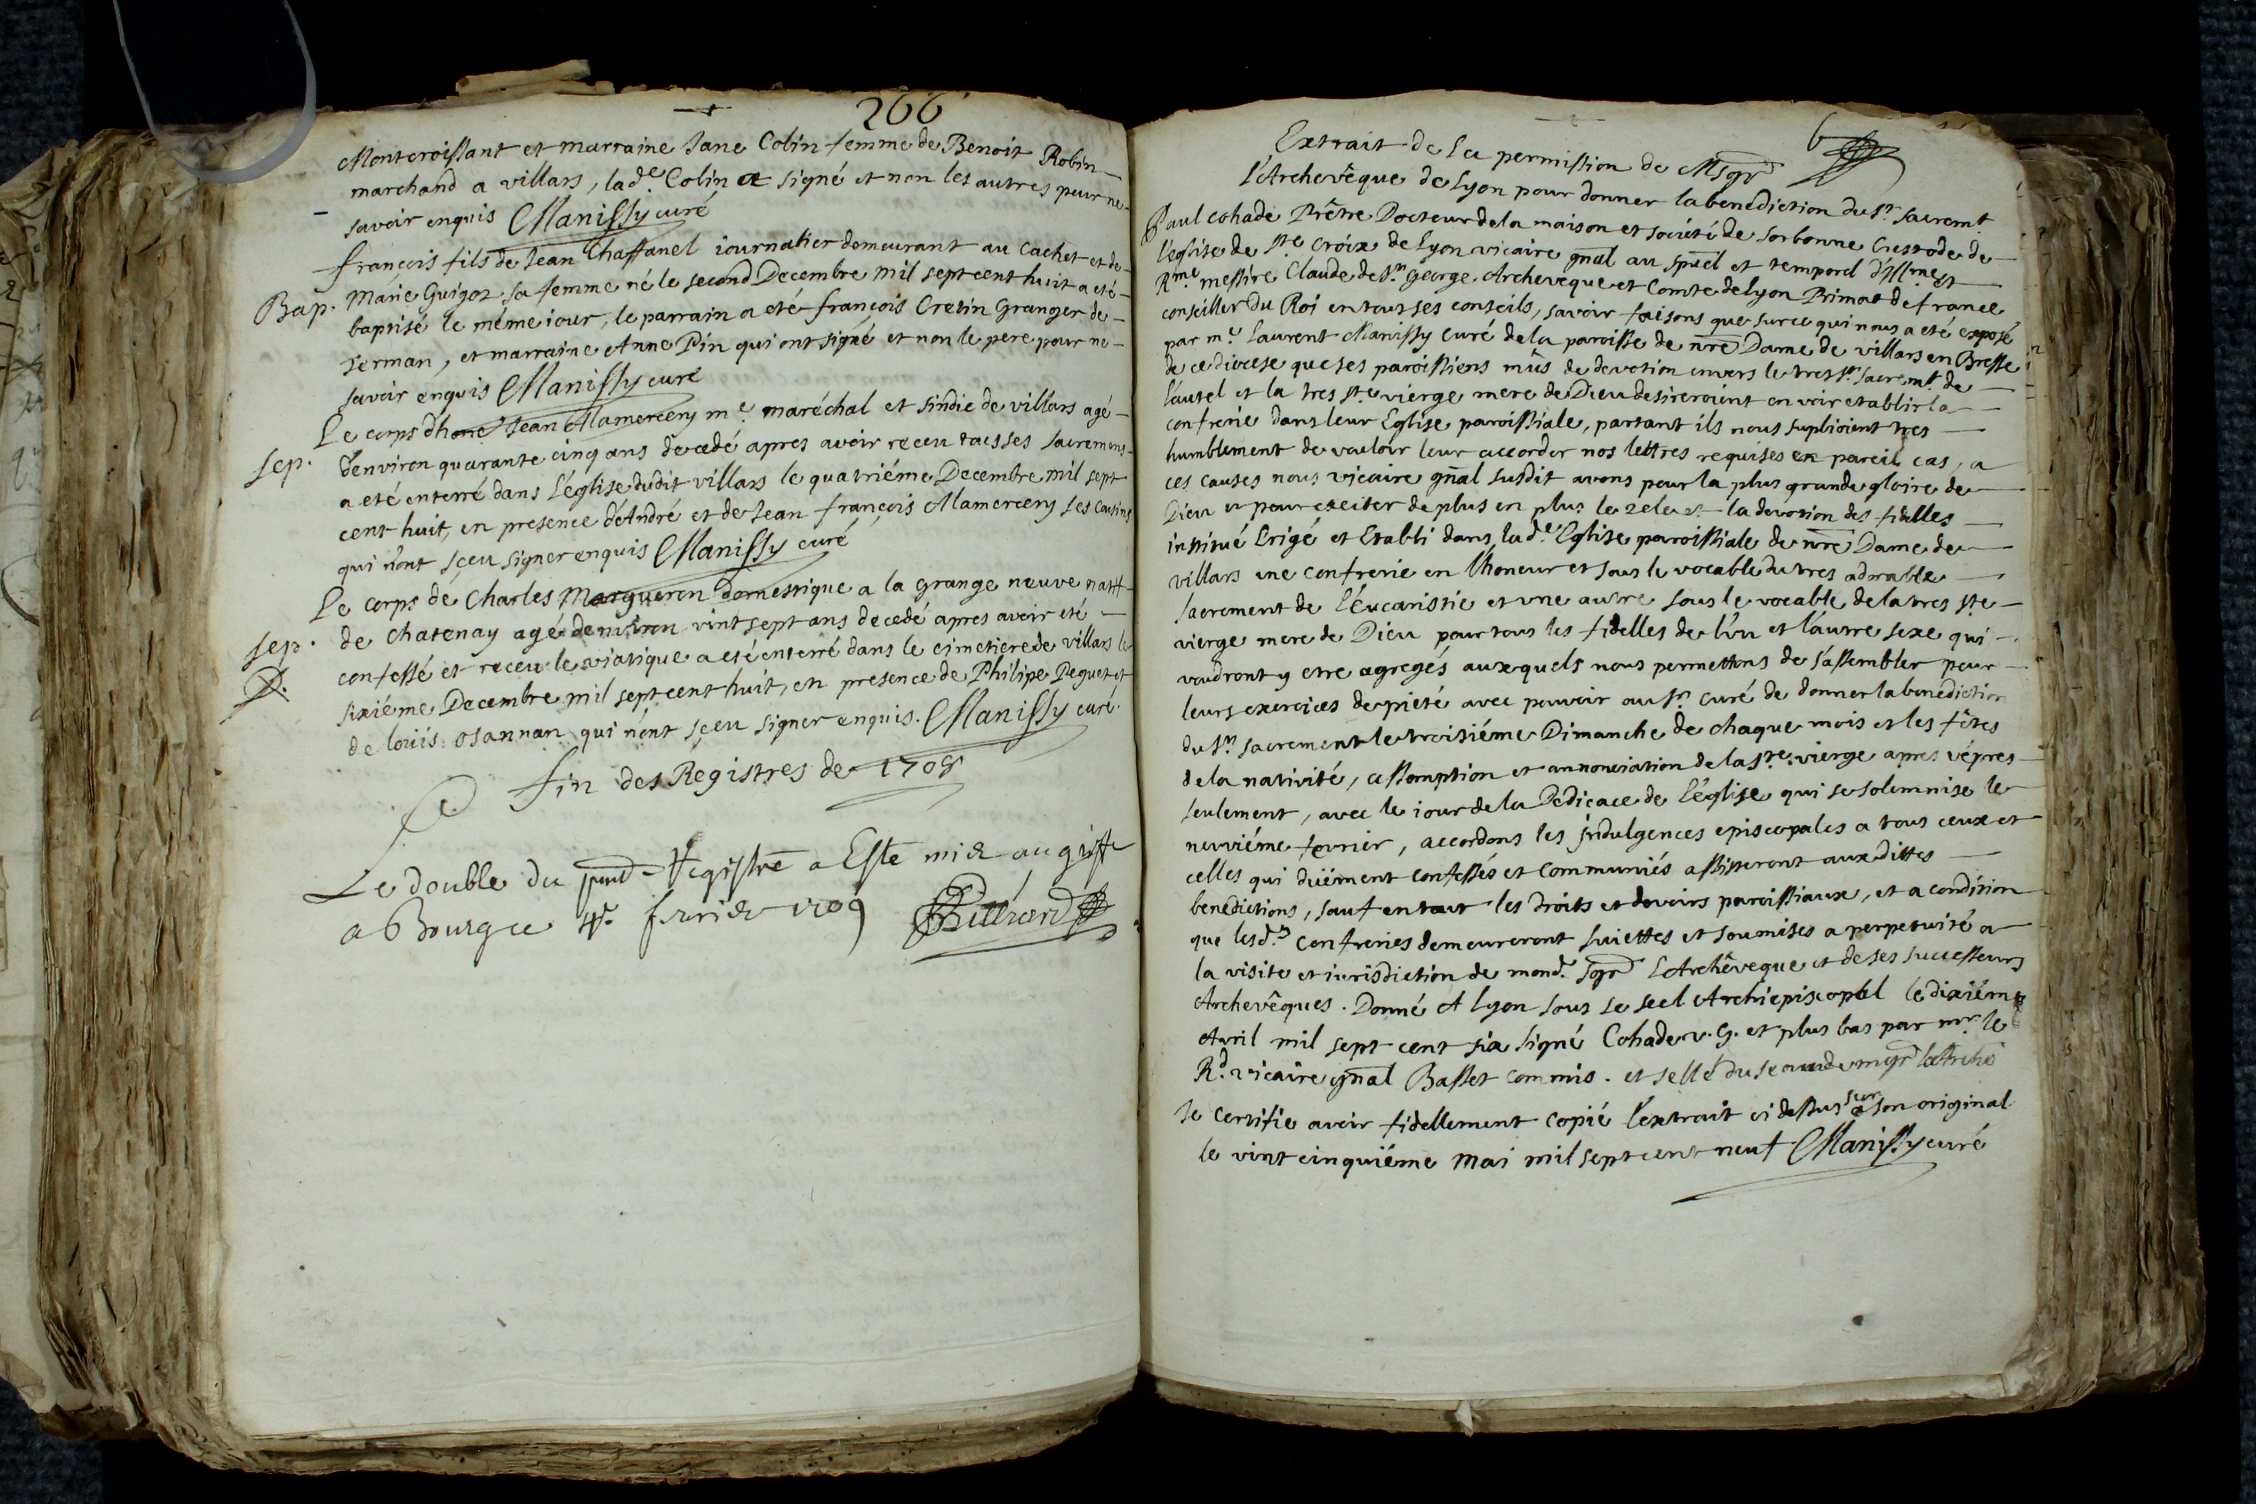 266
Montcroissant et marraine Jane Colin femme de Benoit Robin
marchand a villars, lad.e Colin a signé et non les autres pour ne
savoir enquis Manissy curé
françois fils de Jean Chaffanel iournalier demeurant au Cachet et de
Bap. Marie Guigoz sa femme né le second Decembre mil sept cent huit a eté
baptisé le méme iour, le parrain a eté françois Cretin Granger de
serman, et marraine Anne Pin qui ont signé et non le pere pour ne
savoir enquis Manissy curé
Le corps dhone Jean Mamercery m.e maréchal et sindic de villars agé
sep. d'environ quarante cinq ans decedé apres avoir receu tous ses sacremens
a eté enterré dans l'église dudit villars le quatriéme Decembre mil sept
cent huit, en presence d'André et de Jean françois Mamercery ses cousins
qui n'ont sçeu signer enquis Manissy curé
Le corps de Charles Margueron domestique a la grange neuve natif
sep. de Chatenay agé denviron vint sept ans decedé apres avoir eté
D. confessé et receu le viatique a eté enterré dans le cimetiere de villars le
sixiéme Decembre mil sept cent huit, en presence de Philipe Peguet et
de loüis osannan qui n'ont sçeu signer enquis. Manissy curé
fin des Registres de 1708
Le double du pnt Registre a Esté mis au griffe
a Bourg ce 4e fevrier 1709
6
Extrait de la permission de Msgr
L'Archevêque de Lyon pour donner la benediction du St. sacremt.
Paul Cohade Prêtre Docteur de la maison et societé de sorbonne Custode de
l'église de Ste Croix de Lyon vicaire gnal au spuel et temporel d'Illme et
Rme. messire Claude de St. George Archeveque et Comte de Lyon Primat de france
conseiller du Roi en tous ses conseils, savoir faisons que sur ce qui nous a eté exposé
par m.e Laurent Manissy curé de la paroisse de nre Dame de villars en Bresse
de ce diocese que ses paroissiens mûs de devotion envers le tres St. sacremt. de
l'autel et la tres Ste vierge mere de Dieu desireroient en voir etablir la
confrerie dans leur Eglise paroissiale, partant ils nous suplioient tres
humblement de vouloir leur accorder nos lettres requises en pareil cas, a
ces causes nous vicaire gnal susdit avons pour la plus grande gloire de
Dieu et pour exciter de plus en plus le zele et la devotion des fidelles
institué Erigé et Etabli dans lad.e Eglise paroissiale de nre Dame de
villars une confrerie en l'honeur et sous le vocable du tres adorable
sacrement de l'éucaristie et une autre sous le vocable de la tres Ste
vierge mere de Dieu pour tous les fidelles de l'ûn et l'autre sexe qui
voudront y etre agregés auxquels nous permettons de s'assembler pour
leurs exercices de pieté avec pouvoir au Sr. curé de donner la benediction
du St. sacrement le troisiéme Dimanche de chaque mois et les fêtes
de la nativité, assomption et annonciation de la Ste. vierge apres vépres
seulement, avec le iour de la Dedicace de l'église qui se solemnise le
neuviéme fevrier, accordons les indulgences episcopales a tous ceux et
celles qui dûement confessés et communiés assisteront aux dittes
benedictions, sauf en tout les droits et devoirs paroissiaux, et a condition
que lesd.es confreries demeureront suiettes et soumises a perpetuité a
la visite et iurisdiction de mond. sgr L'Archêveque et de ses successeurs
Archevêques. Donné A Lyon sous le seel Archiepiscopal le dixiéme
Avril mil sept cent six signé Cohade v. G. et plus bas par mr. le
Rd. vicaire gnal Basset commis. et sellé du sceau de mgr l'Arche
Je certifie avoir fidellement copié l'extrait ci dessus sur son original
le vint cinquiéme Mai mil sept cent neuf Manissy curé